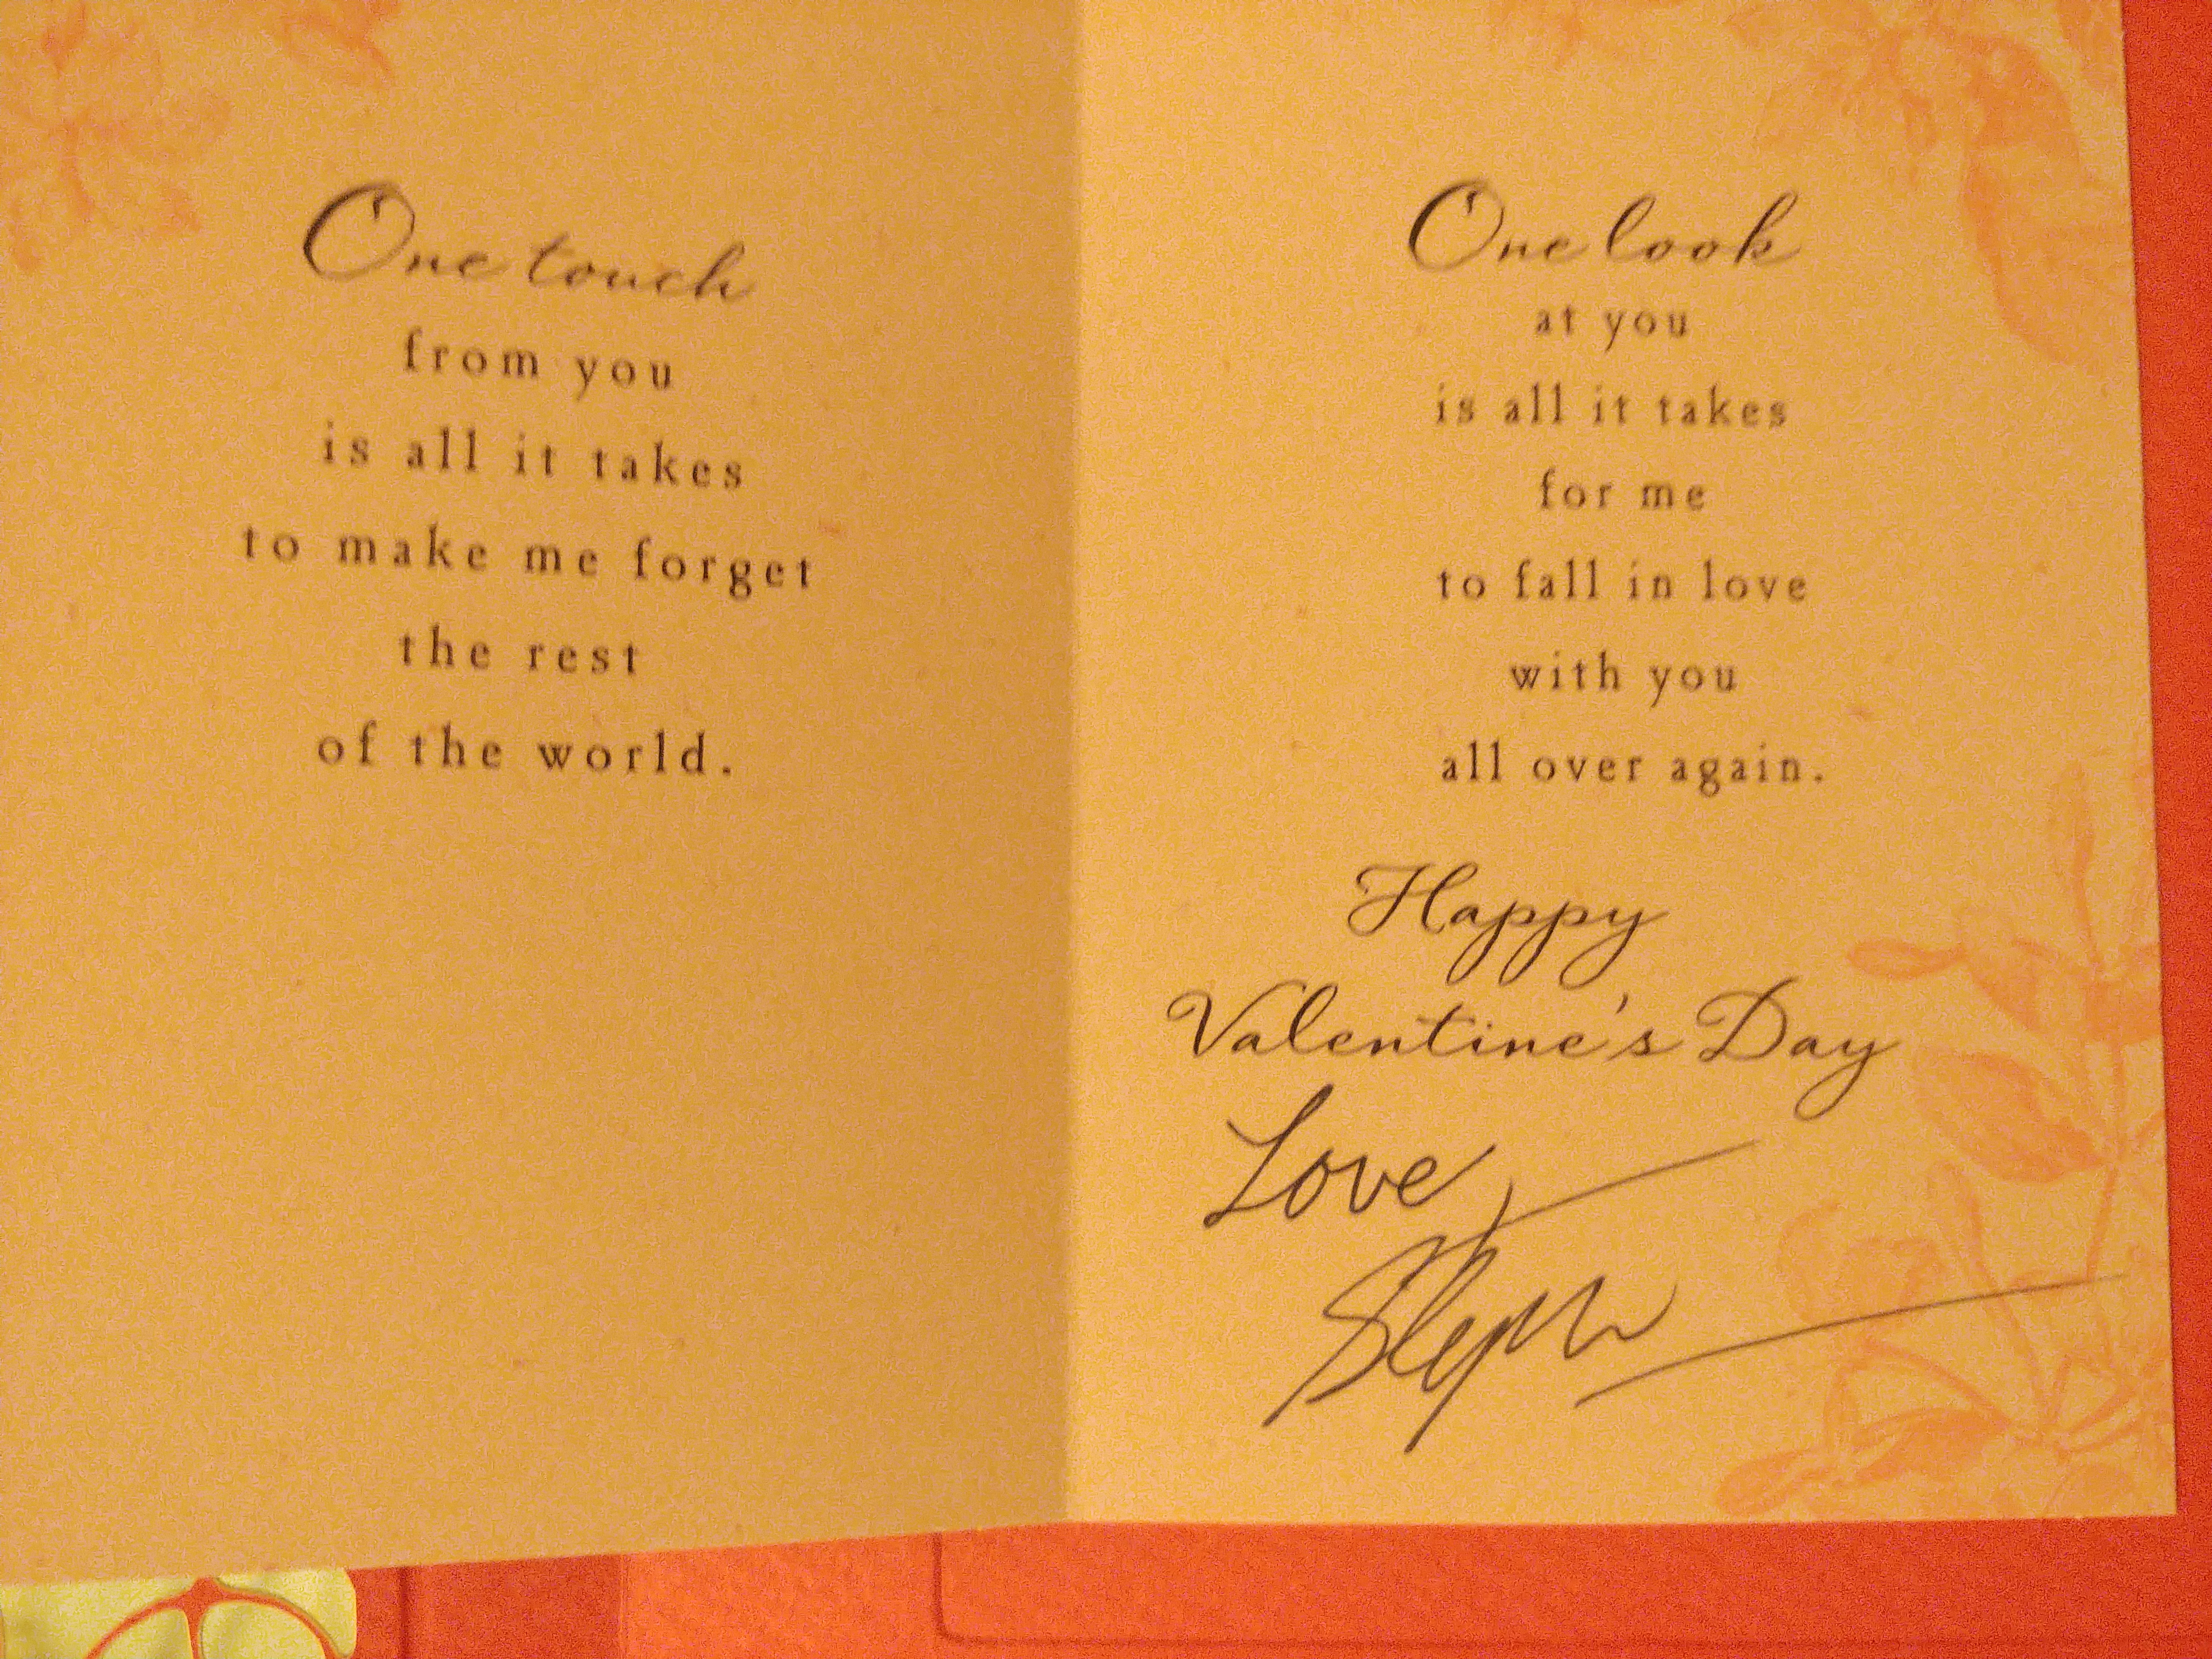 One touch
from you
is all it takes
to make me forget
the rest
of the world.
One look
at you
is all it takes
for me
to fall in love
with you
all over again.
Happy
Valentine's Day
Love,
Steph